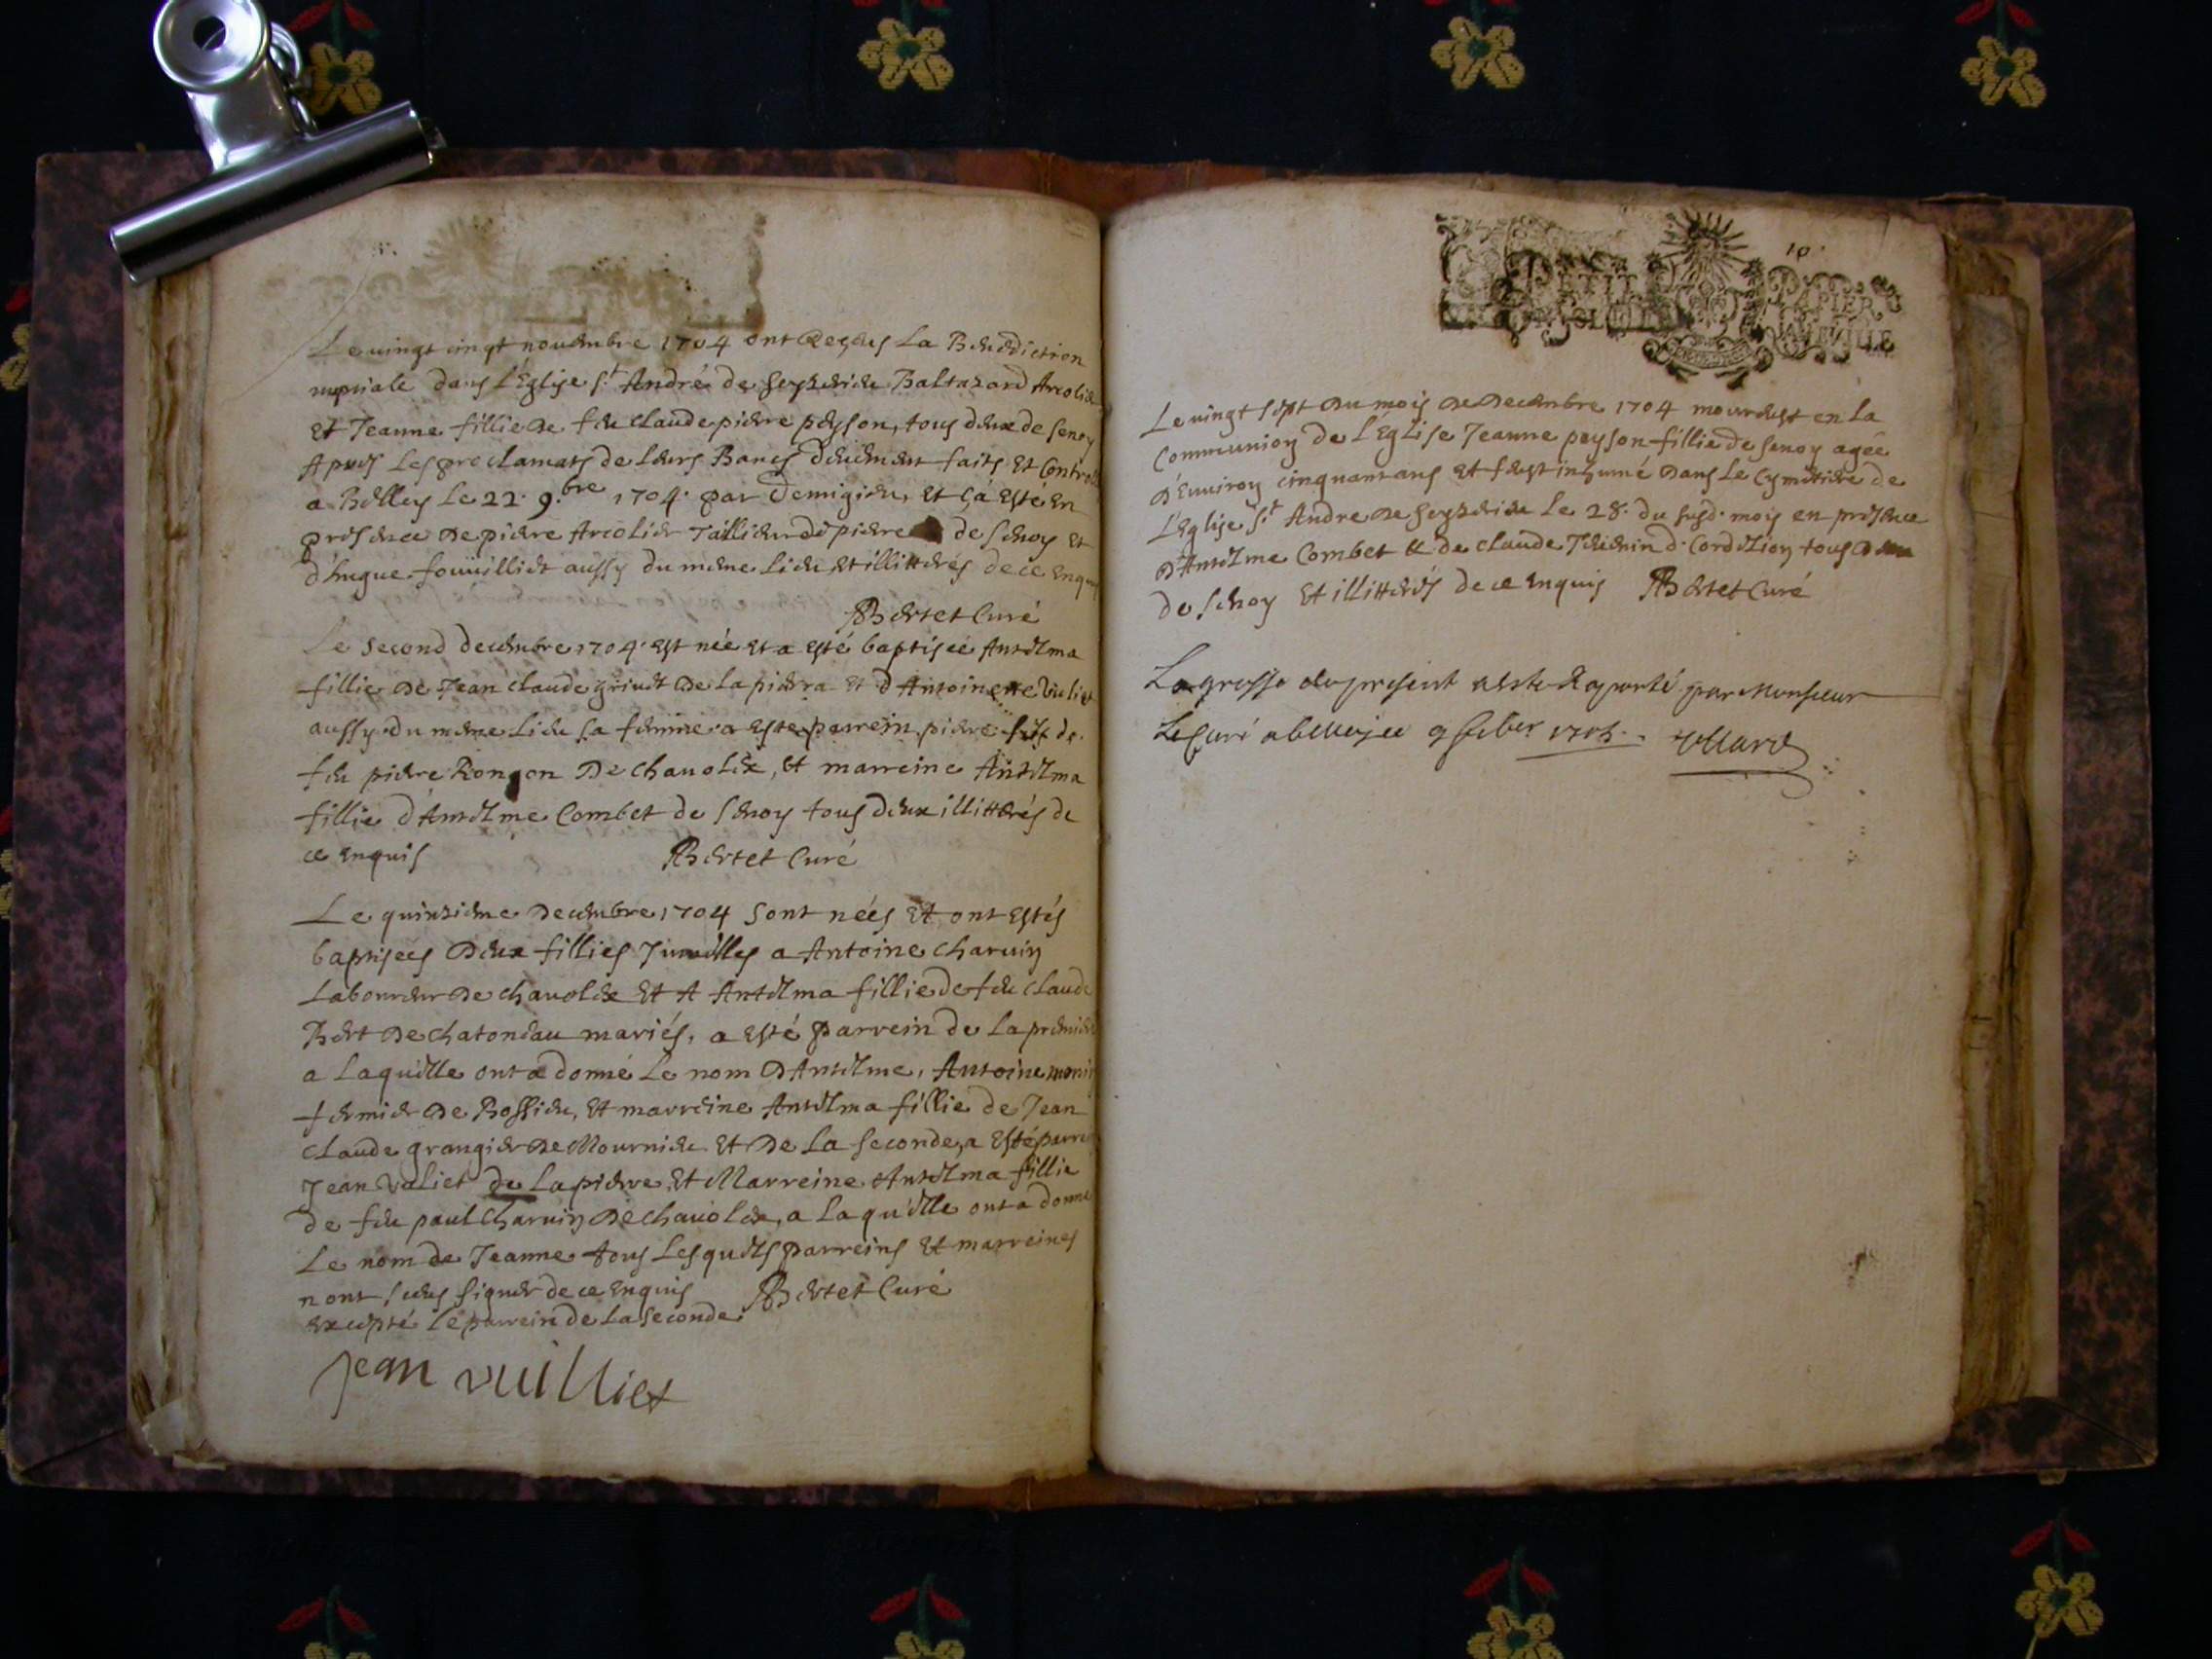 Le vingt cinqt novembre 1704 ont Receus La Benediction
nuptiale dans L'Eglise S.t André de Seyzerieu Baltazard Arcolier
Et Jeanne fillie De feu Claude pierre peysson, tous deux de Senoy
Apres Les proclamats de Leurs Bancs deuement faits Et Controll
a Belley Le 22. 9.bre 1704. par Demigieu, Et ça Esté En
presence De pierre Arcolier Taillieur de pierre de Senoy Et
d'hugue aussy du meme Lieu Et illitterés de ce Enquis
Bertet Curé
Le second decembre 1704. Est née Et a Esté baptisée Antelma
fillie De Jean Claude De Lapierra Et d'Antoinette
aussy du meme Lieu sa femme a Esté parrein pierre fils de
feu pierre De Chavolex, Et marreine Antelma
fillie d'Antelme Combet de Senoy tous deux illitterés de
ce Enquis Bertet Curé
Le quinzieme Decembre 1704 sont nées Et ont Estés
baptisées Deux fillies Jumelles a Antoine Charvin
Laboureur De Chavolex Et A Antelma fillie de feu Claude
Bert De Chatoneau mariés, a Esté parrein de La premiere
a Laquelle ont a donné Le nom D'Antelme, Antoine
fermier De Rossieu, Et marreine Antelma fillie de Jean
Claude grangier De Mournieu Et De La seconde, a Esté parrein
Jean Valiet de Lapierre Et Marreine Antelma fillie
de feu paul Charvin De Chavolex, a Laquelle ont a donné
Le nom de Jeanne tous Lesquels parreins Et marreines
n ont sceus signer de ce Enquis Bertet Curé
Excepté Le parrein de La seconde
jean vuilliet
10.
PETIT PAPIER
Le vingt sept Du mois De Decembre 1704 mourust en La
Communion de L'Eglise Jeanne peysson fillie de Senoy agée
D'Environ cinquant ans Et fust inhumé Dans Le Cymetiere de
L'Eglise S.t Andre De Seyzerieu Le 28. du susd. mois en presence
D'Antelme Combet & de Claude d. Cordelion tous Deux
de Senoy Et illitterés de ce Enquis Bertet Curé
La grosse du present a este Raporté par Monsieur
Le Curé a belley ce 1705.